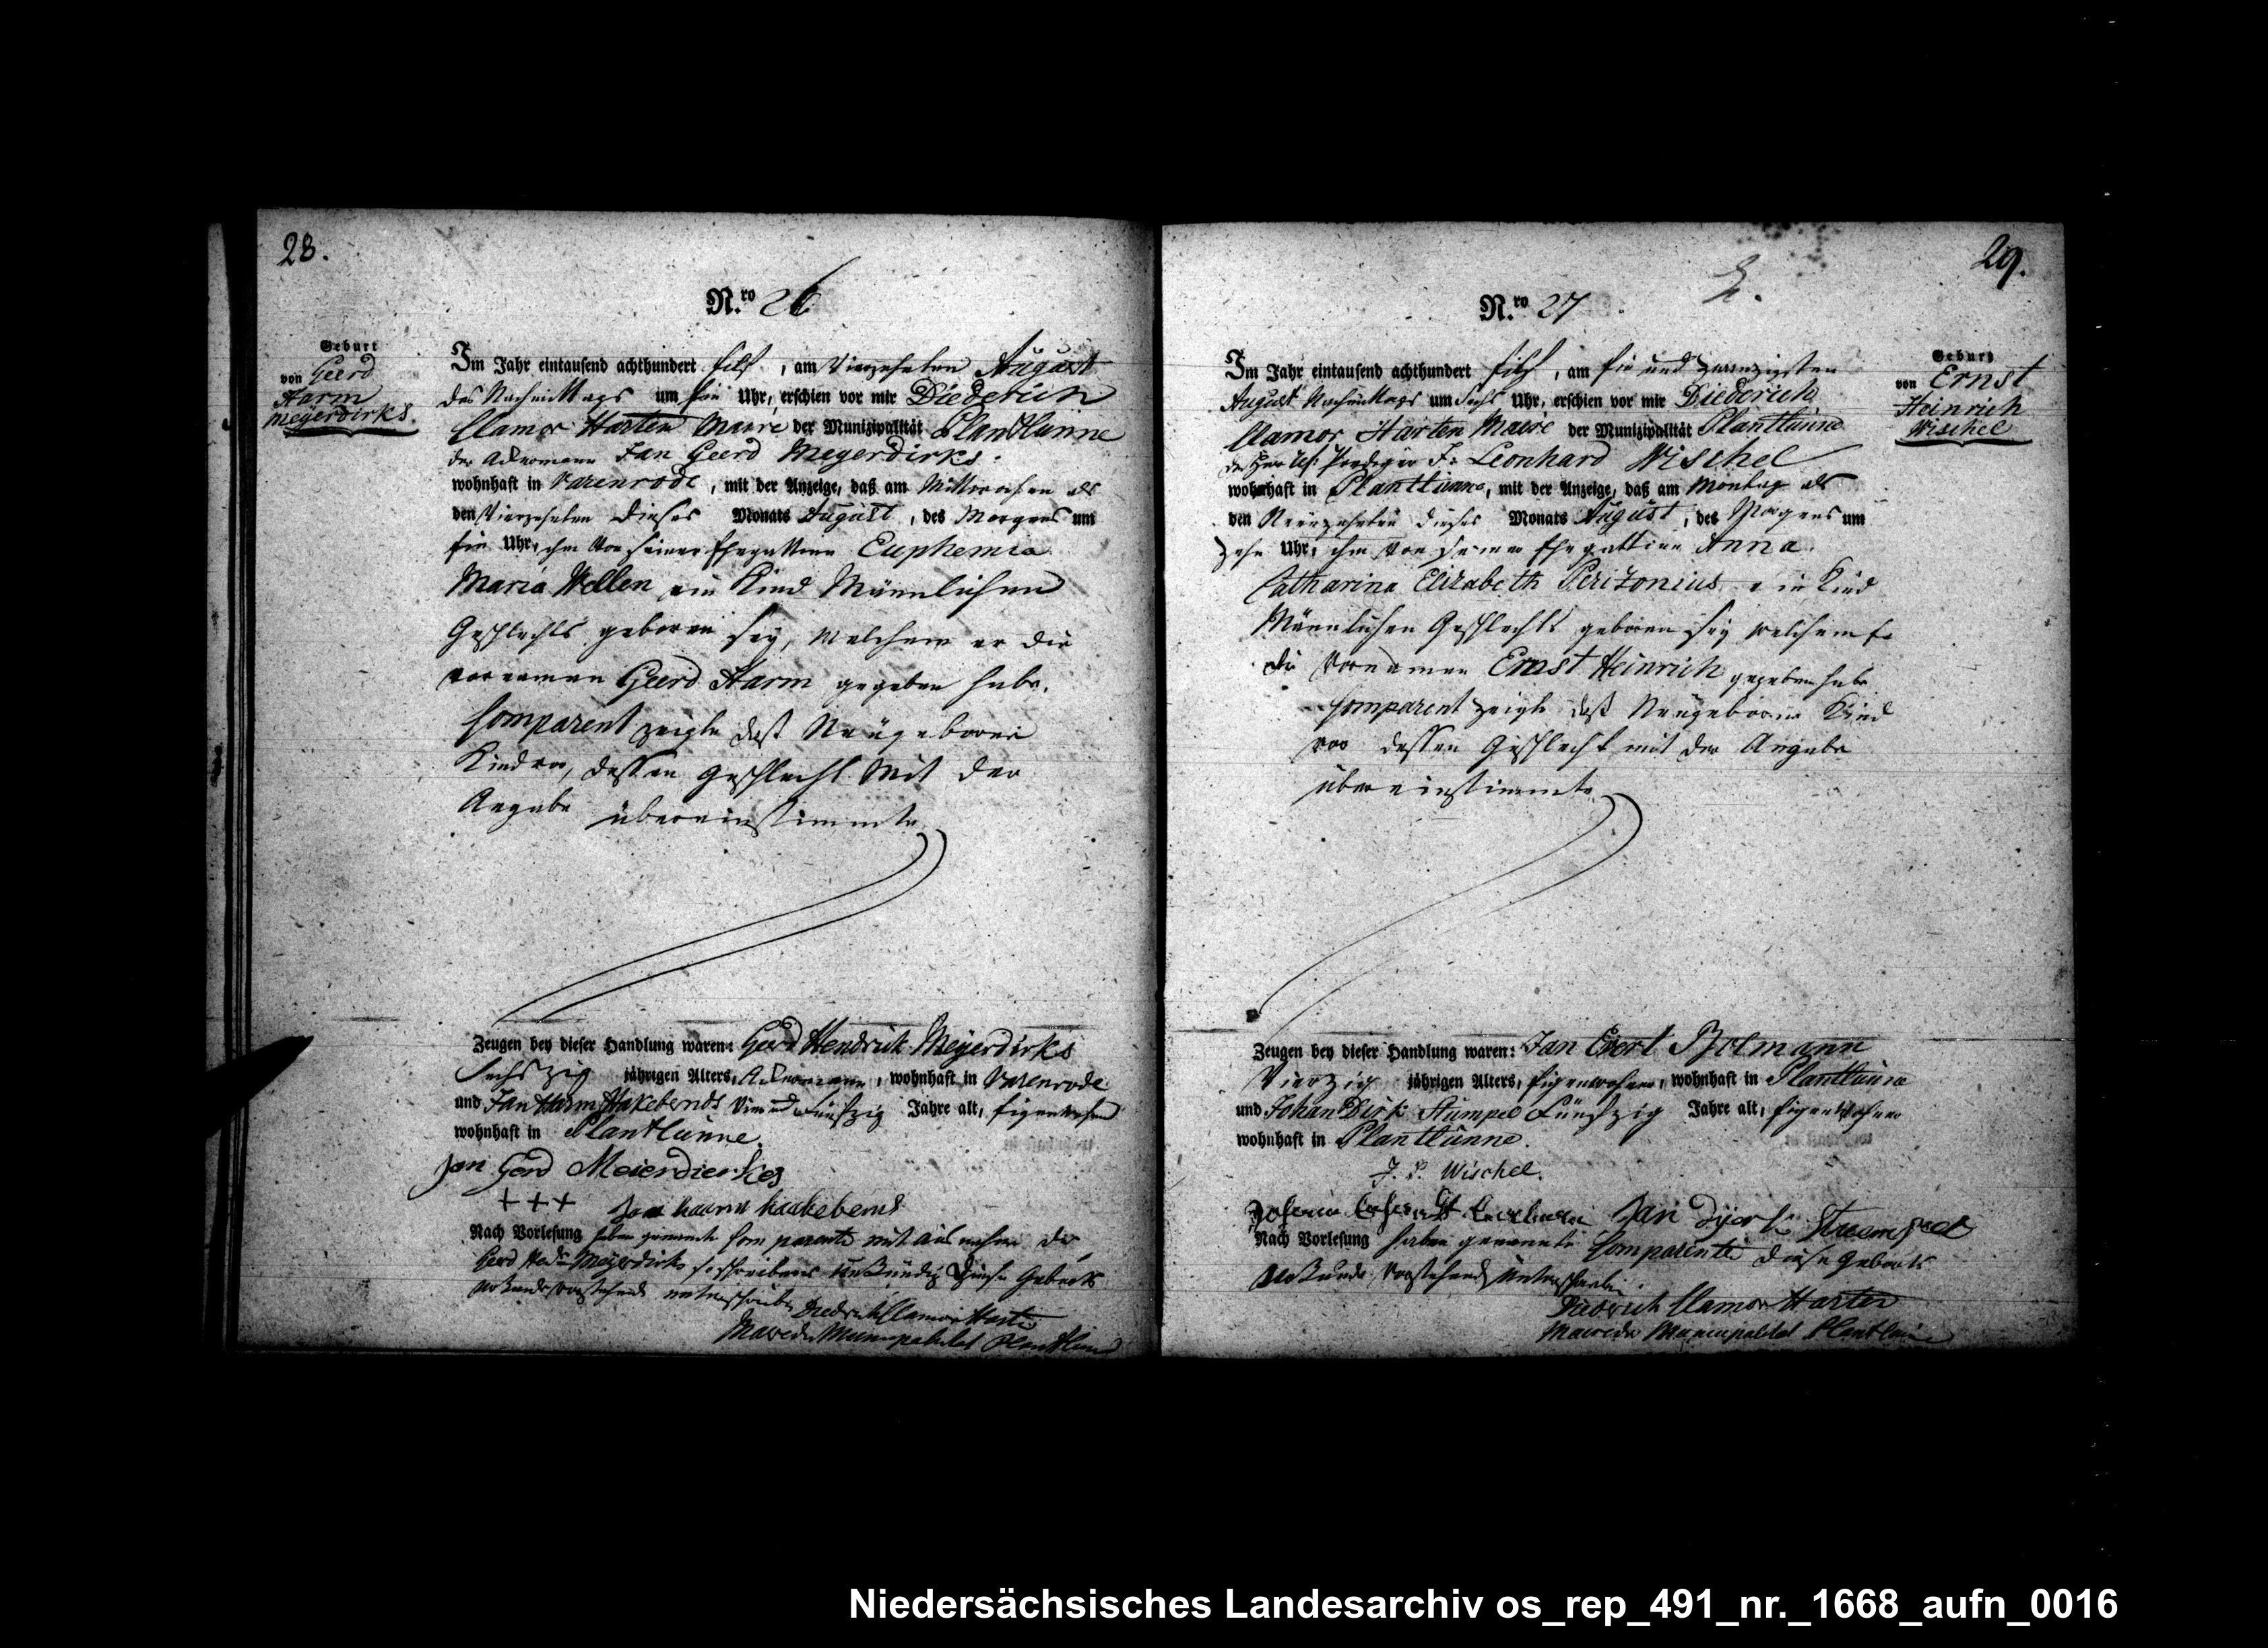 28.
N.ro 26
Geburt
von Geerd
Harm
Meyerdirks.
Im Jahr eintausend achthundert Eilf, am Vierzehnten August
des Nachmittags um Ein Uhr, erschien vor mir Diederich
Clamor Harten Maire der Munizipalität Plantlünne
der Ackermann Jan Geerd Meyerdirks.
wohnhaft in Varenrode, mit der Anzeige, daß am Mittwochen als
den Vierzehnten dieses Monats August, des Morgens um
Ein Uhr, ihm von seiner Ehegattinn Euphemia
Maria Wellen ein Kind Männlichen
Geschlechts geboren sey, welchem er die
vornamen Geerd Harm gegeben habe.
Comparent zeigte daß Neügeborne
Kind vor, dessen Geschlecht mit der
Angabe übereinstimmte
Zeugen bey dieser Handlung waren: Gerd Hendrick Meyerdirks
Sechszig jährigen Alters, Ackermann, wohnhaft in Varenrode
und Jan Harm Hakebends Vier und Fünfzig Jahre alt, Eigenwohner
wohnhaft in Plantlünne.
Jan Gerd Meierdierkes
+++ Jan harm haakebens
Nach Vorlesung haben genannte Comparente mit ausnahme des
Gerd Hedr. Meyerdirks schreibens unkündig diese Geburts
urkunde vorstehend unterschrieben Diedrich Clamor Harten
Maire der Municipalität Plantlünne
29.
N.ro 27
Geburt
von Ernst
Heinrich
Wischel
Im Jahr eintausend achthundert Eilf, am Ein und zwanzigsten
August Nachmittags um Sechs Uhr, erschien vor mir Diederich
Clamor Harten Maire der Munizipalität Plantlünne
der Prediger J. Leonhard Wischel
wohnhaft in Plantlünne, mit der Anzeige, daß am Montag als
den Neünzehnten dieses Monats August, des Morgens um
Zehn Uhr, ihm von seiner Ehegattinn Anna
Catharina Elizabeth Perizonius ein Kind
Männlichen Geschlechts geboren sey welchem Er
die Vornamen Ernst Heinrich gegeben habe
Comparent zeigte daß Neügeborne Kind
vor dessen Geschlecht mit der Angabe
übereinstimmte
Zeugen bey dieser Handlung waren: Jan Evert Bolmann
Vierzig jährigen Alters, Eigenwohner, wohnhaft in Plantlünne
und Johan Dirk Stümpel Fünfzig Jahre alt, Eigenwohner
wohnhaft in Plantlünne.
J. L. Wischel.
Jan Djerk Struempel
Nach Vorlesung haben genannte Comparente diese Geburts
Urkunde, vorstehend unterschrieben
Diedrich Clamor Harten
Maire der Municipalität Plantlünne
Niedersächsisches Landesarchiv os_rep_491_nr._1668_aufn_0016